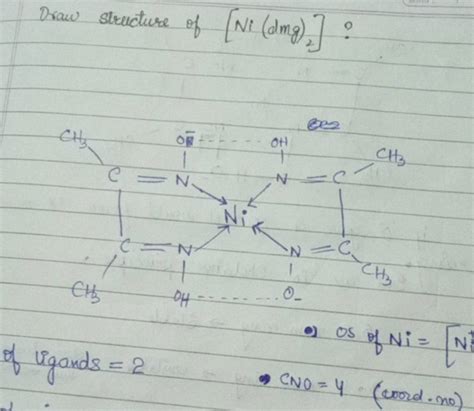 Draw structure of [Ni(dmg)₂] ?
CH₃ O⁻ ------- OH CH₃
C = N N = C
Ni
C = N N = C
CH₃ OH ------- O- CH₃
•) OS of Ni = [Ni
of ligands = 2
• CNO = 4 (coord. no)